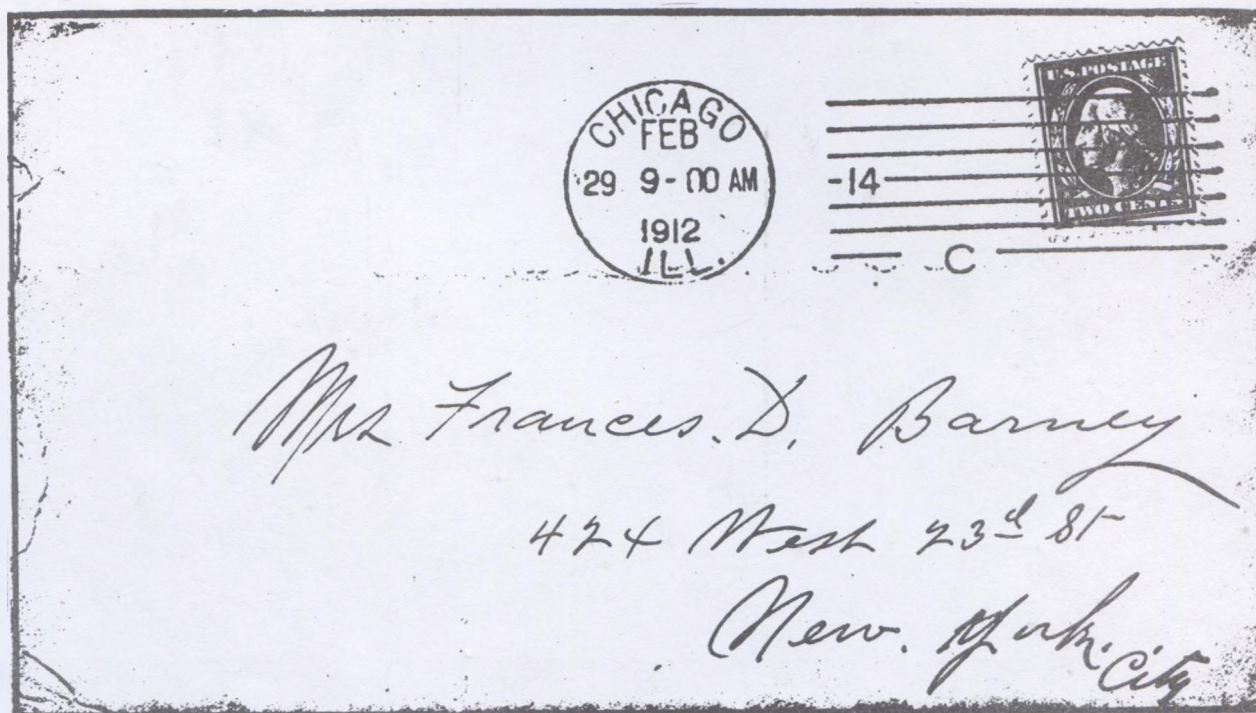 CHICAGO
FEB
29 9-00 AM
1912
ILL.
-14-
C
U.S. POSTAGE
TWO CENTS
Mrs Frances. D. Barney
424 West 23d St
New. York.
City